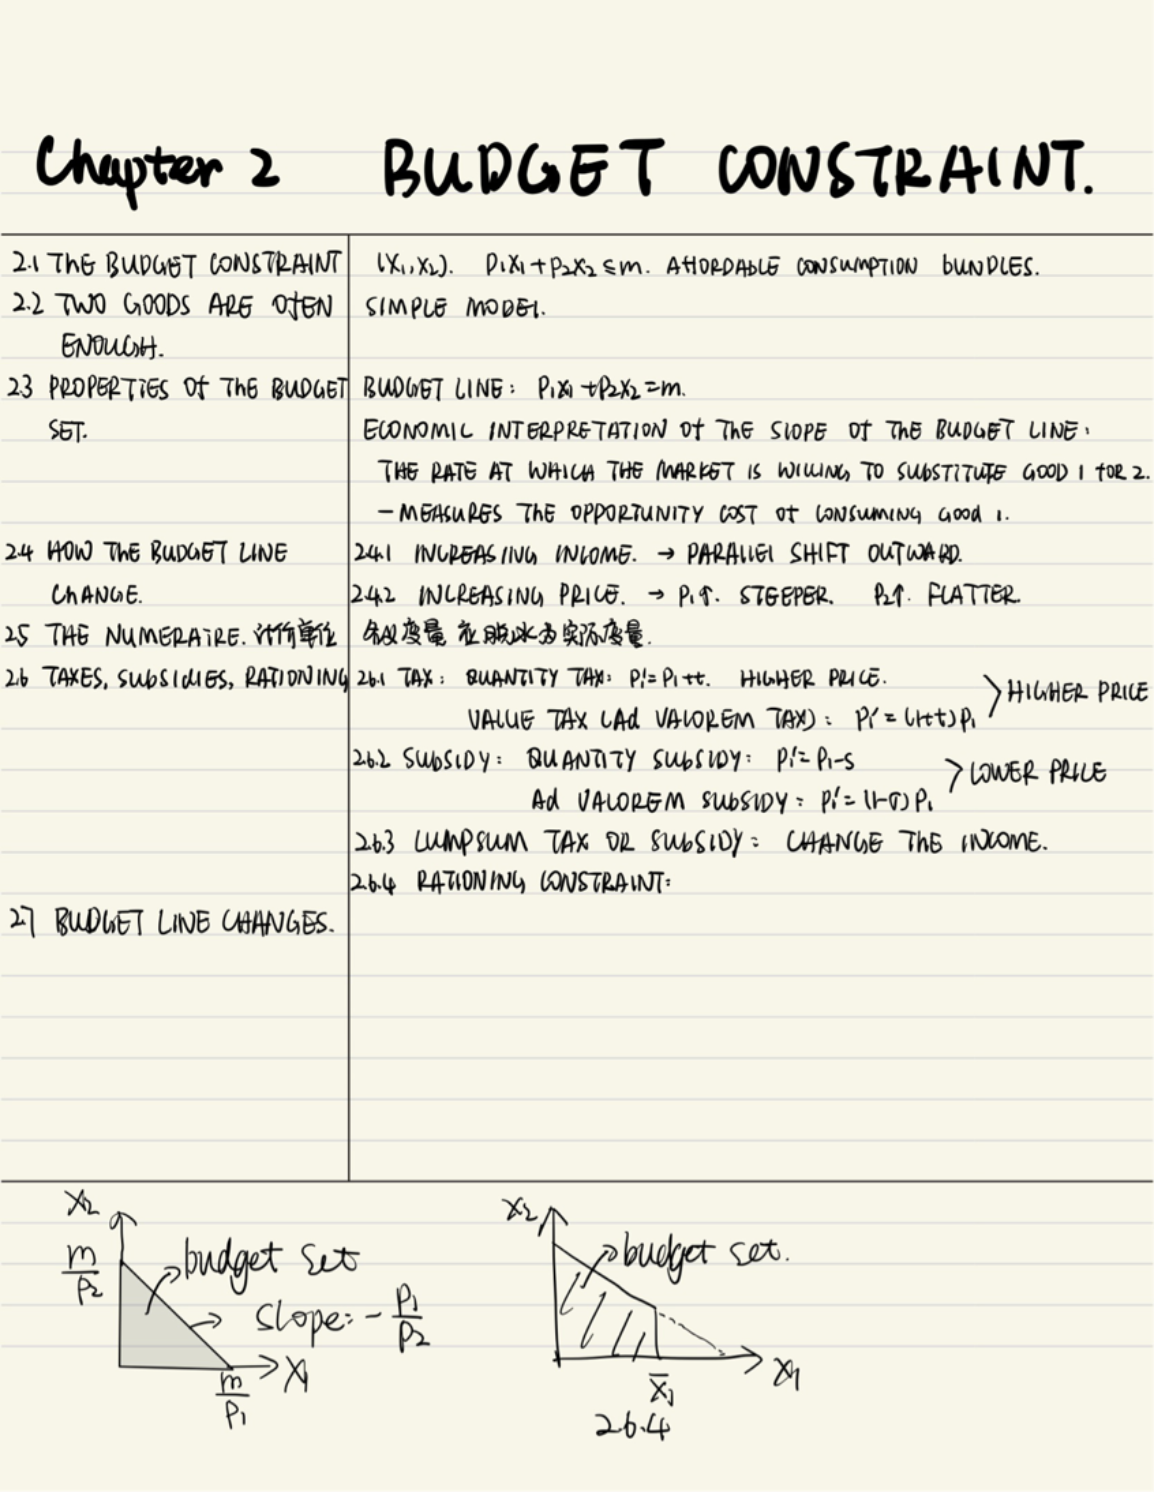 Chapter 2 BUDGET CONSTRAINT.
2.1 THE BUDGET CONSTRAINT (X₁, X₂). P₁X₁+P₂X₂≤m. AFFORDABLE CONSUMPTION BUNDLES.
2.2 TWO GOODS ARE OFTEN SIMPLE MODEL.
ENOUGH.
2.3 PROPERTIES OF THE BUDGET BUDGET LINE: P₁X₁+P₂X₂=m.
SET. ECONOMIC INTERPRETATION OF THE SLOPE OF THE BUDGET LINE:
THE RATE AT WHICH THE MARKET IS WILLING TO SUBSTITUTE GOOD 1 FOR 2.
- MEASURES THE OPPORTUNITY COST OF CONSUMING GOOD 1.
2.4 HOW THE BUDGET LINE 2.4.1 INCREASING INCOME. → PARALLEL SHIFT OUTWARD.
CHANGE. 2.4.2 INCREASING PRICE. → P₁↑. STEEPER. P₂↑. FLATTER.
2.5 THE NUMERAIRE. 计价单位 名义变量 变量.
2.6 TAXES, SUBSIDIES, RATIONING 2.6.1 TAX: QUANTITY TAX: P₁'=P₁+t. HIGHER PRICE.
VALUE TAX (Ad VALOREM TAX): P₁'=(1+t)P₁ > HIGHER PRICE
2.6.2 SUBSIDY: QUANTITY SUBSIDY: P₁'=P₁-s
Ad VALOREM SUBSIDY: P₁'=(1-σ)P₁ > LOWER PRICE
2.6.3 LUMPSUM TAX OR SUBSIDY: CHANGE THE INCOME.
2.6.4 RATIONING CONSTRAINT:
2.7 BUDGET LINE CHANGES.
X₂
m/P₂
budget set
slope: -P₁/P₂
X₁
m/P₁
X₂
budget set.
X̄₁
X₁
2.6.4